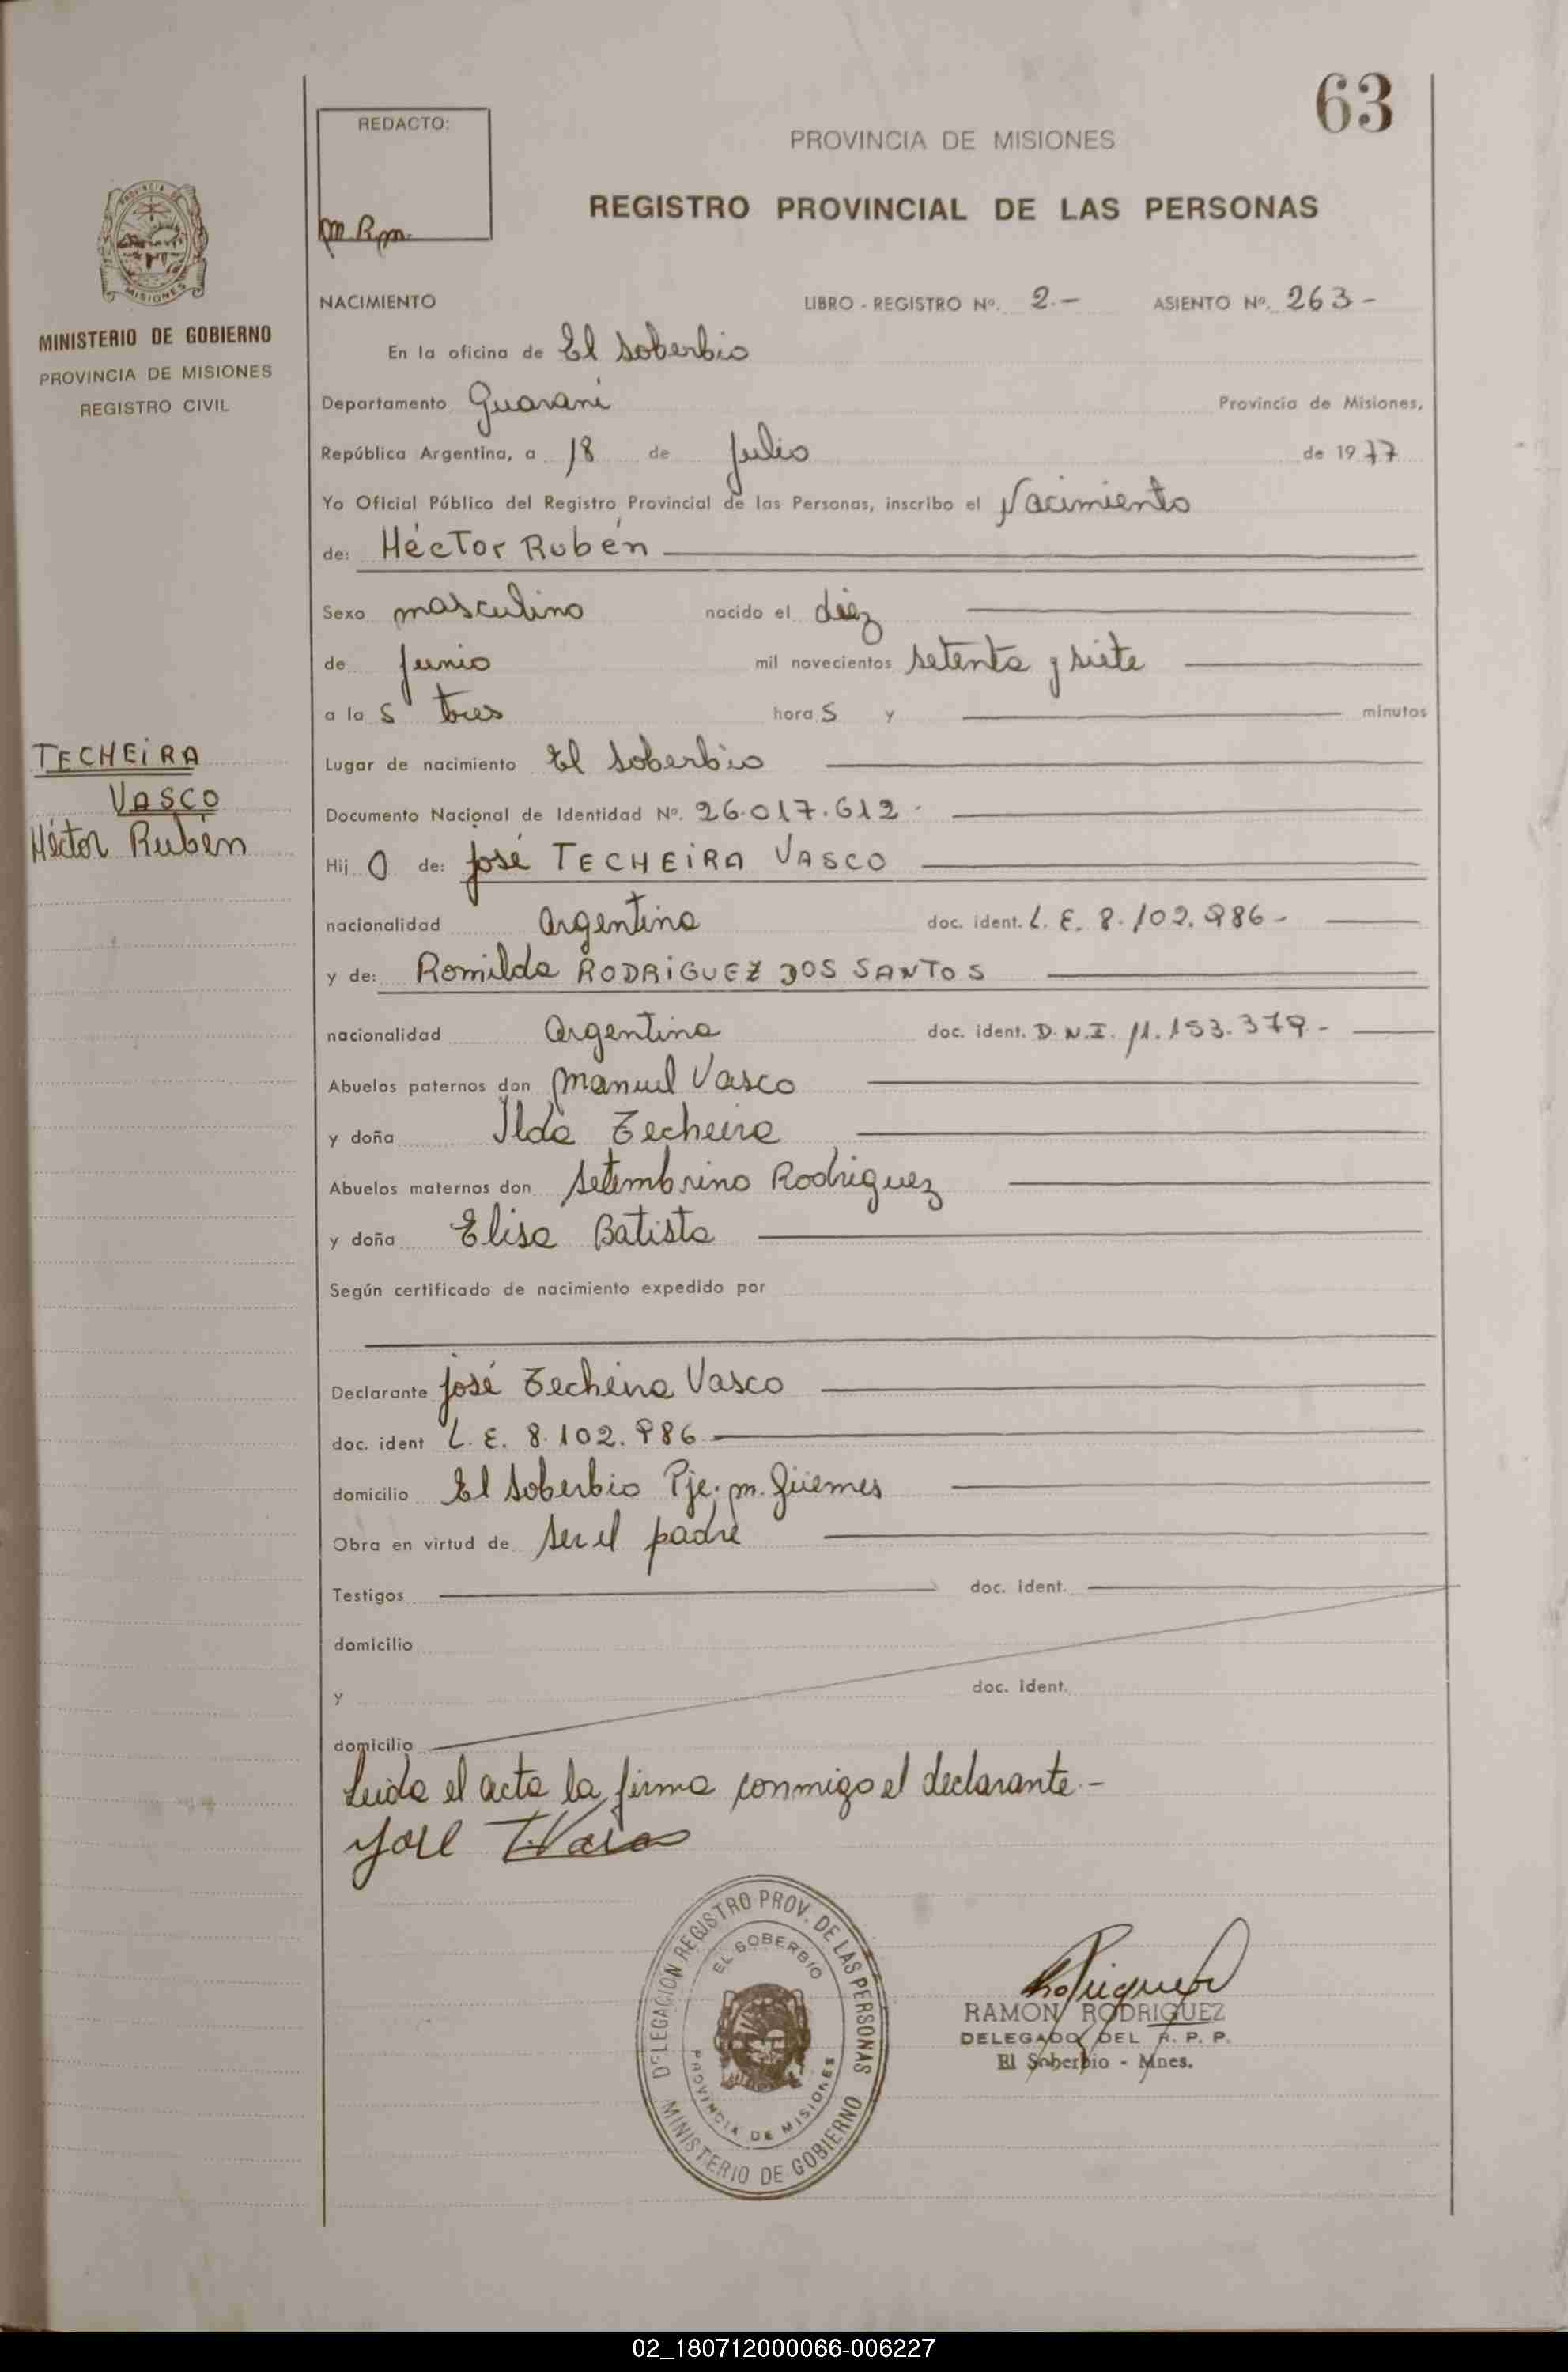 63
REDACTO:
M. R. M.
PROVINCIA DE MISIONES
REGISTRO PROVINCIAL DE LAS PERSONAS
PROVINCIA DE
MISIONES
MINISTERIO DE GOBIERNO
PROVINCIA DE MISIONES
REGISTRO CIVIL
NACIMIENTO LIBRO - REGISTRO Nº. 2.- ASIENTO Nº. 263-
En la oficina de El Soberbio
Departamento Guaraní Provincia de Misiones,
República Argentina, a 18 de Julio de 1977
Yo Oficial Público del Registro Provincial de las Personas, inscribo el Nacimiento
de: Héctor Rubén
Sexo masculino nacido el diez
de Junio mil novecientos setenta y siete
a las tres horas y minutos
TECHEIRA
VASCO
Héctor Rubén
Lugar de nacimiento El Soberbio
Documento Nacional de Identidad Nº. 26.017.612.
Hijo de: José TECHEIRA VASCO
nacionalidad argentina doc. ident. L. E. 8.102.986-
y de: Romilda RODRIGUEZ DOS SANTOS
nacionalidad argentina doc. ident. D.N.I. 11.153.379-
Abuelos paternos don Manuel Vasco
y doña Ilda Techeira
Abuelos maternos don Setembrino Rodriguez
y doña Elisa Batista
Según certificado de nacimiento expedido por
Declarante José Techeira Vasco
doc. ident L. E. 8.102.986
domicilio El Soberbio Pje. M. Güemes
Obra en virtud de ser el padre
Testigos doc. ident.
domicilio
y doc. ident.
domicilio
Leida el acta la firma conmigo el declarante.-
José T. Vasco
DELEGACION REGISTRO PROV. DE LAS PERSONAS
EL SOBERBIO
PROVINCIA DE MISIONES
MINISTERIO DE GOBIERNO
Rodriguez
RAMON RODRIGUEZ
DELEGADO DEL R. P. P.
El Soberbio - Mnes.
02_180712000066-006227